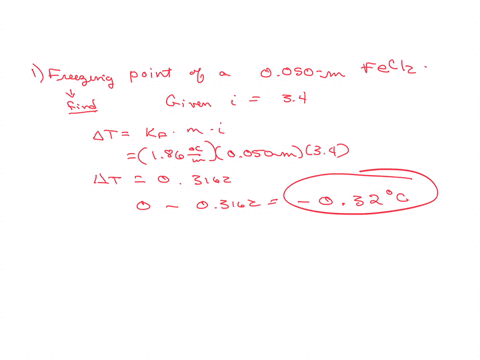 1) Freezing point of a 0.050-m FeCl2.
↓
Find Given i = 3.4
ΔT = KF · m · i
= (1.86 °C/m)(0.050m)(3.4)
ΔT = 0.3162
0 - 0.3162 = -0.32°C